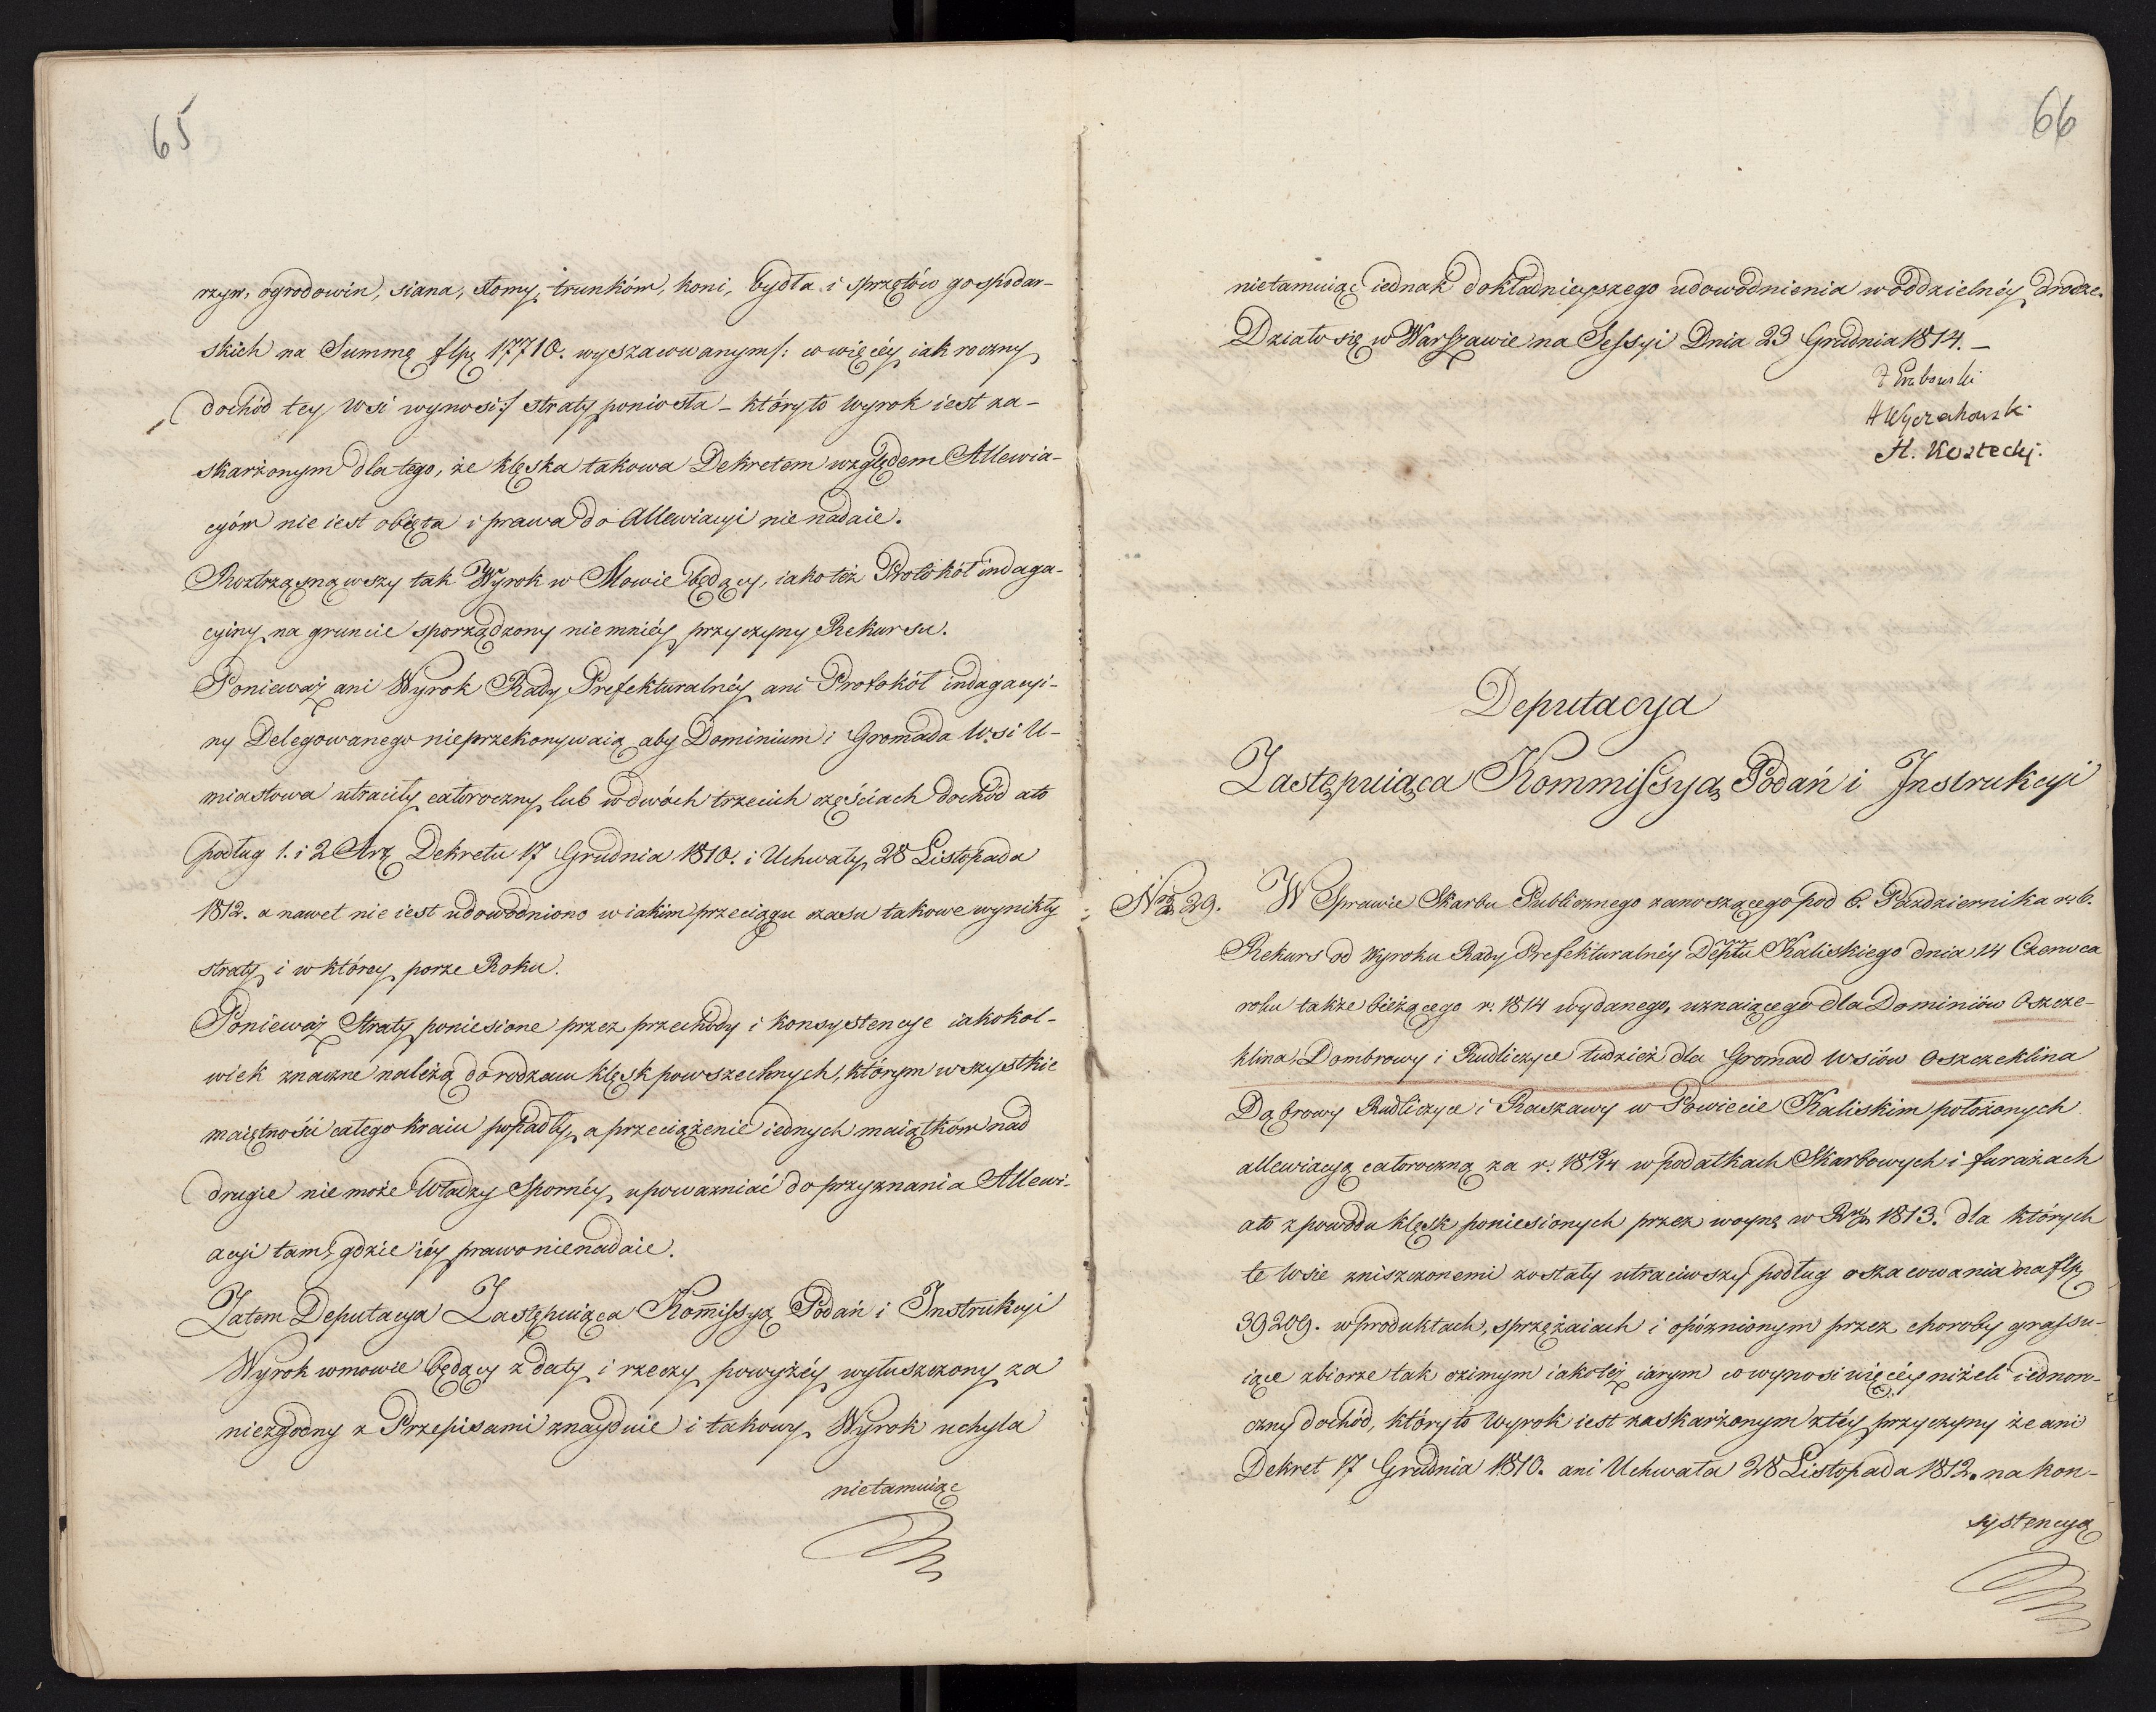 65
rzyw, ogrodowin, siana, słomy, trunków, koni, bydła i sprzętów gospodar-
skich na Summę flpę 17710. wyszacwanym/: co więcéy iak roczny
dochód tey wsi wynosi:/ straty poniosła - który to Wyrok iest za-
skarżonym dla tego, że klęska takowa Dekretem względem Allewia-
cyów nie iest obięta i prawa do Allewiacyi nie nadaie.
Roztrząsnąwszy tak Wyrok w Mowie będący, iako też Protokół indaga-
cyiny na gruncie sporządzony niemniéy przyczyny Rekursu.
Ponieważ ani Wyrok Rady Prefekturalnéy ani Protokół indagacyi-
ny Delegowanego nieprzekonywaią aby Dominium i Gromada Wsi U-
miastowa utraciły całoroczny lub w dwóch trzecich częściach dochód ato
podług 1. i 2 Arṭ Dekretu 17 Grudnia 1810. i Uchwały 28 Listopada
1812. a nawet nie iest udowodniono w iakim przeciągu czasu takowe wynikły
straty i w którey porze Roku.
Ponieważ Straty poniesione przez przechody i konsystencye iakokol-
wiek znaczne należą do rodzaiu klęsk powszechnych, którym wszystkie
maiętności całego kraiu popadły, a przeciążenie iednych maiątków nad
drugie nie może Władzy Spornéy upoważniać do przyznania Allewi-
acyi tam, gdzie iéy prawo nienadaie.
Zatem Deputacya Zastępuiąca Komissyą Podań i Instrukcyi
Wyrok w mowie będący z daty i rzeczy powyżéy wyłuszczony za
niezgodny z Przepisami znayduie i takowy Wyrok uchyla
nietamuiąc
66
nietamuiąc iednak dokładnieyszego udowodnienia w oddzielnéy drodze.
Działo się w Warszawie na Sessyi Dnia 23 Grudnia 1814. -
Grabowski
H Wyczechowski
H. Kostecki.
Deputacya
Zastępuiąca Kommissyą Podań i Instrukcyi
Nro 29. W Sprawie Skarbu Publicznego zanoszącego pod 6. Października r. b.
Rekurs od Wyroku Rady Prefekturalnéy Deptu Kaliskiego dnia 14 Czerwca
roku także bieżącego r. 1814 wydanego, uznaiącego dla Dominiów Oszcze-
klina, Dombrowy i Rudliczyce tudzież dla Gromad Wsiów Oszczeklina
Dąbrowy Rudliczyce i Raszawy w Powiecie Kaliskim położonych
allewiacyą całoroczną za r. 1813/14 w podatkach Skarbowych i furażach
ato z powodu klęsk poniesionych przez woynę w Rku 1813. dla których
te Wsie zniszczonemi zostały utraciwszy podług oszacowania na flp.
39209. w produktach, sprzężaiach i opóznionym przez choroby grassu-
iące zbiorze tak ozimym iakoteż iarym co wynosi więcéy niżeli iednoro-
czny dochód, który to Wyrok iest zaskarżonym z téy przyczyny że ani
Dekret 17 Grudnia 1810. ani Uchwała 28 Listopada 1812. na kon-
systencyą